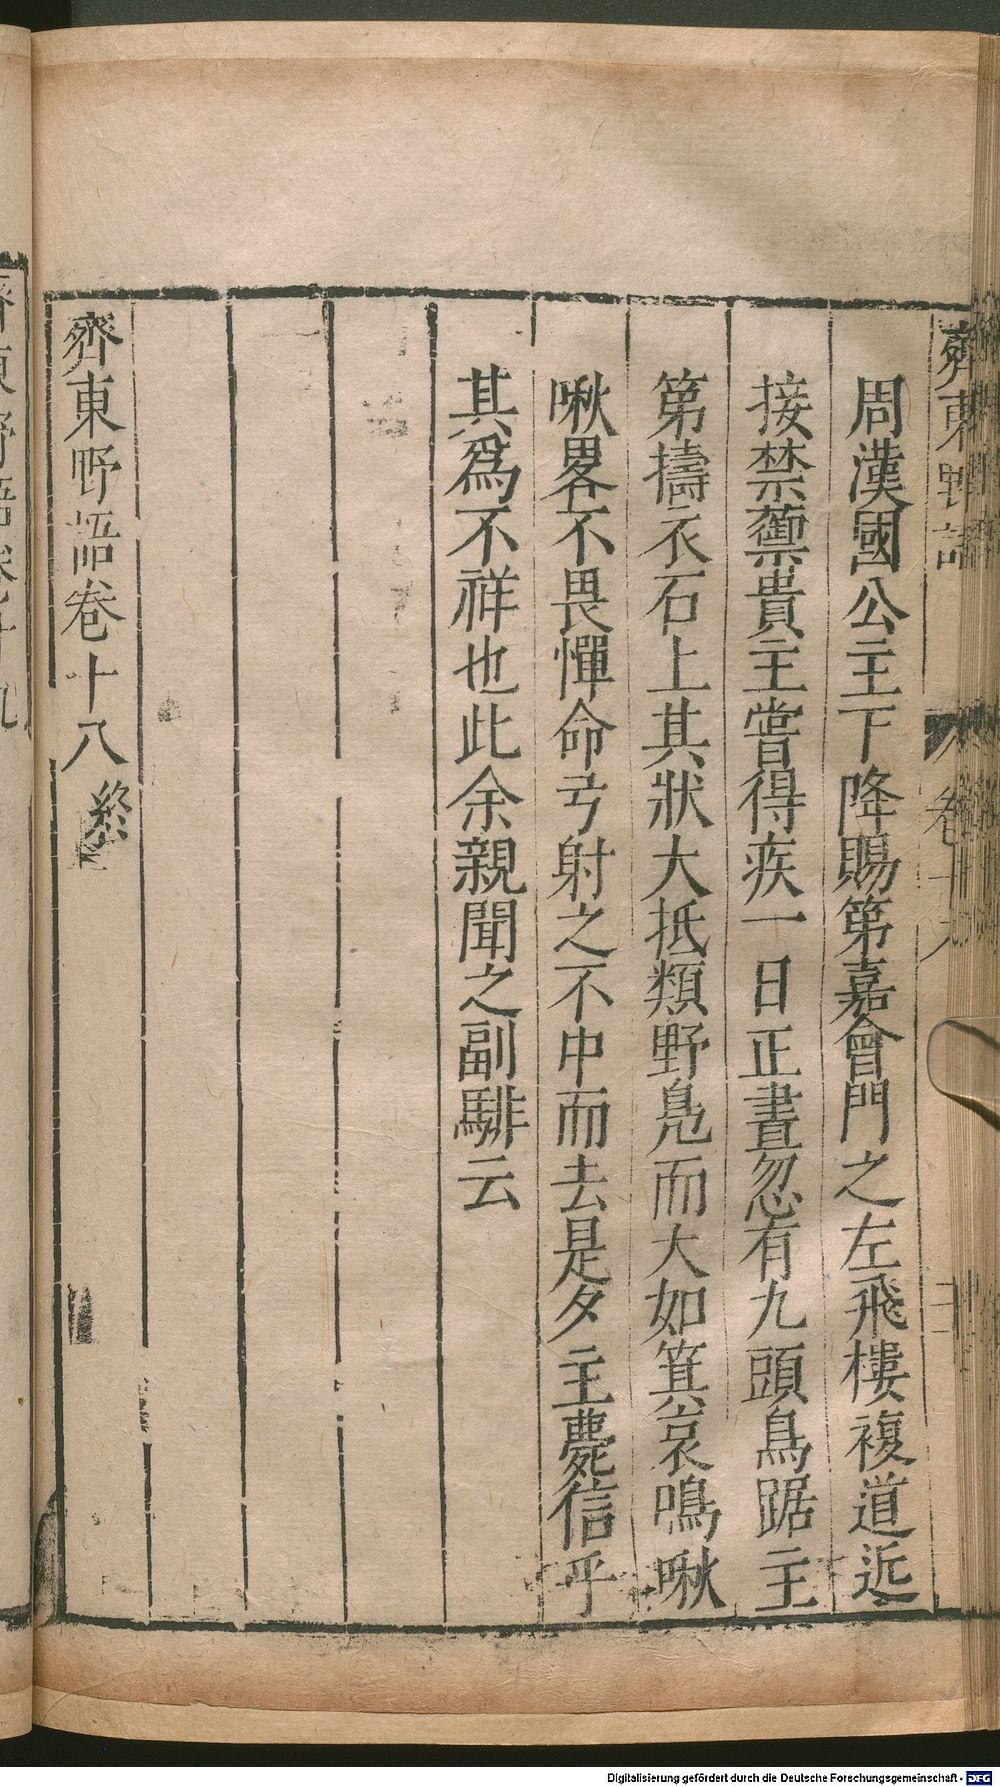 齊東野語
卷十八
周漢國公主下降賜第嘉會門之左飛樓複道近
接禁籞貴主嘗得疾一日正晝忽有九頭鳥踞主
第擣衣石上其狀大抵類野鳧而大如箕哀鳴啾
啾畧不畏憚命弓射之不中而去是夕主薨信乎
其爲不祥也此余親聞之副騑云
齊東野語卷十八終
齊東野語卷十九
Digitalisierung gefördert durch die Deutsche Forschungsgemeinschaft - DFG